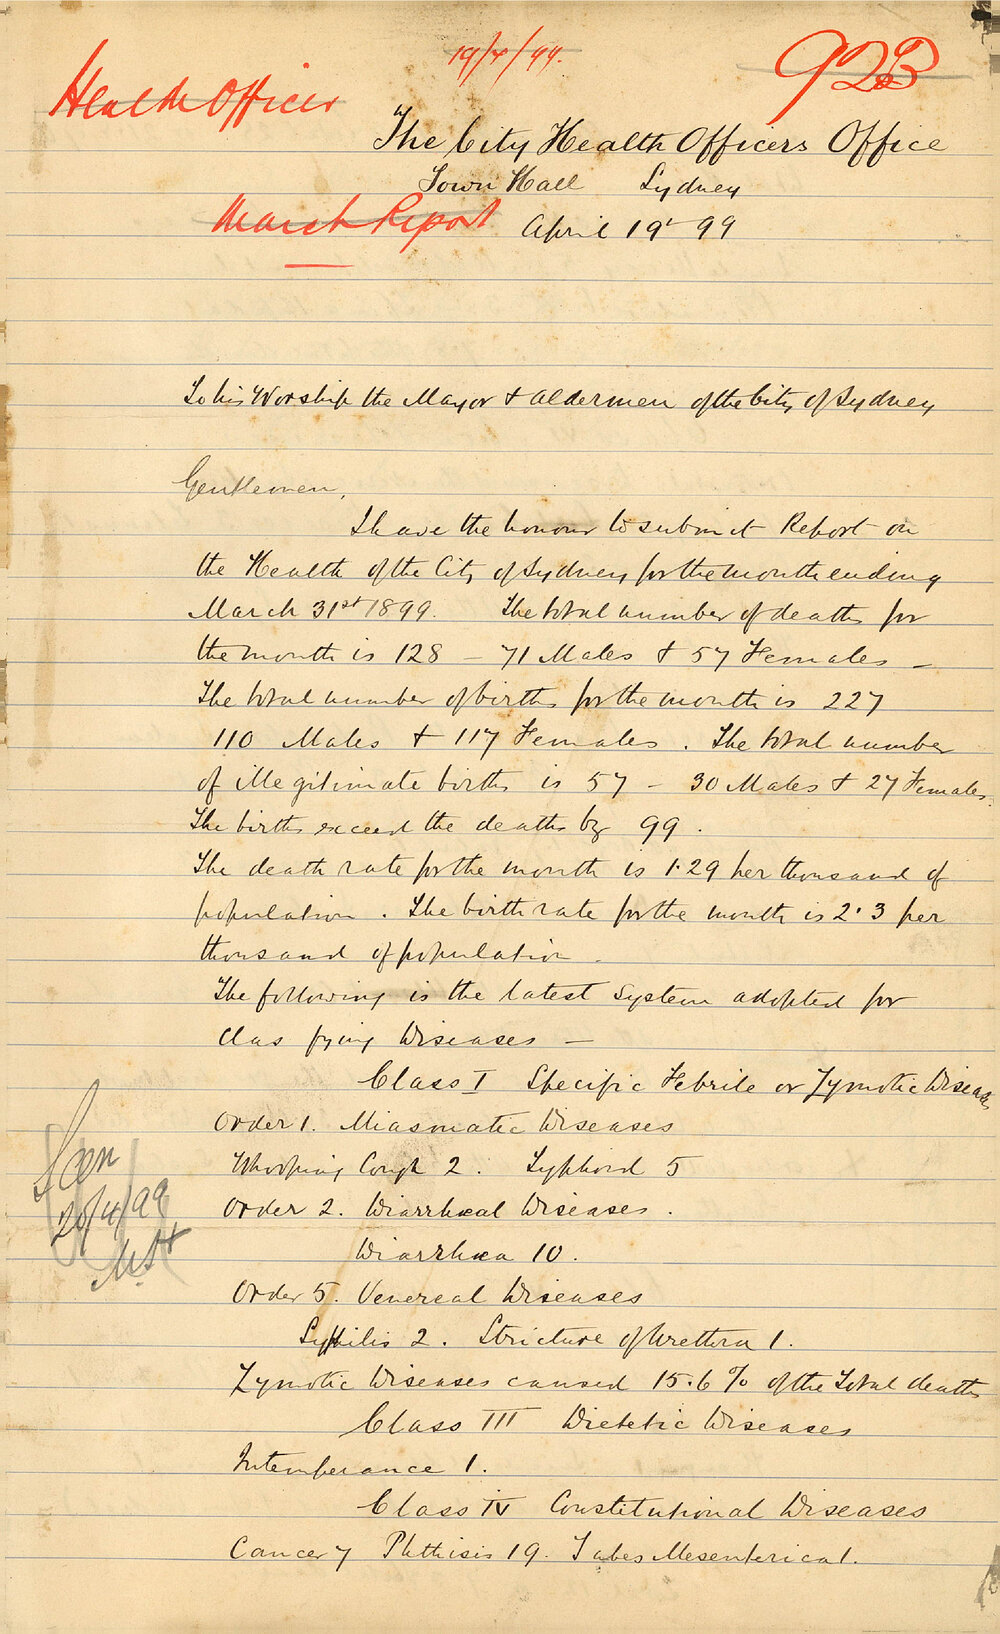 19/4/99.
Health Officer
92B
The City Health Officers Office
Town Hall Sydney
March Report
April 19th 99
To his Worship the Mayor & Aldermen of the City of Sydney
Gentlemen,
I have the honour to submit Report on
the Health of the City of Sydney for the month ending
March 31st 1899. The total number of deaths for
the month is 128 — 71 Males & 57 Females —
The total number of births for the month is 227
110 Males & 117 Females. The total number
of illegitimate births is 57 — 30 Males & 27 Females.
The births exceed the deaths by 99.
The death rate for the month is 1.29 per thousand of
population. The birth rate for the month is 2.3 per
thousand of population.
The following is the latest system adopted for
classifying Diseases —
Class I Specific Febrile or Zymotic Diseases
Order 1. Miasmatic Diseases
Whooping Cough 2. Typhoid 5
Order 2. Diarrhœal Diseases.
Diarrhœa 10.
Order 5. Venereal Diseases
Syphilis 2. Stricture of Urethra 1.
Zymotic Diseases caused 15.6 % of the Total deaths
Class III Dietetic Diseases
Intemperance 1.
Class IV Constitutional Diseases
Cancer 7 Phthisis 19. Tabes Mesenterica 1.
Seen
20/4/99